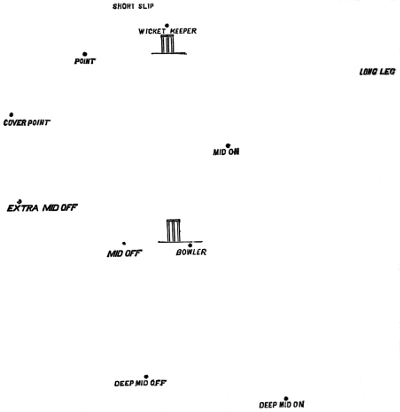 SHORT SLIP
WICKET KEEPER
POINT
LONG LEG
COVER POINT
MID ON
EXTRA MID OFF
MID OFF
BOWLER
DEEP MID OFF
DEEP MID ON